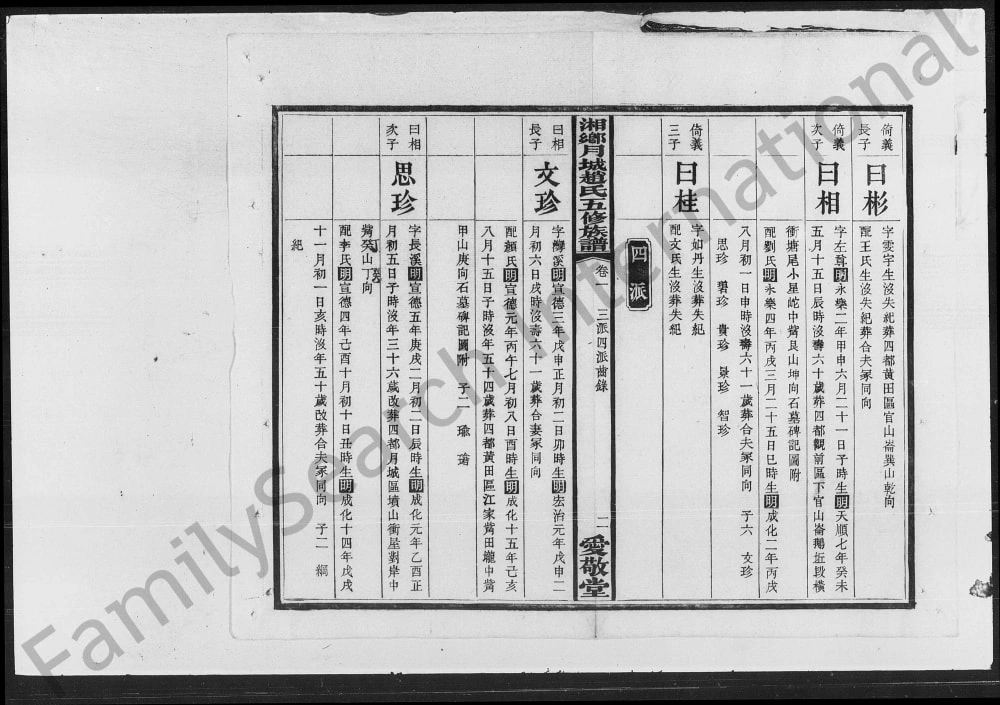 倚義長子
曰彬
字雯宇生沒失紀葬四都黃田區官山崙巽山乾向
配王氏生沒失紀葬合夫冢同向
倚義次子
曰相
字左尊明永樂二年甲申六月二十一日子時生明天順七年癸未
五月十五日辰時沒壽六十歲葬四都觀前區下官山崙鵝坵段橫
衝塘尾小星𡶶中嘴艮山坤向石墓碑記圖附
配劉氏明永樂四年丙戌三月二十五日巳時生明成化二年丙戌
八月初一日申時沒壽六十一歲葬夫冢同向 子六 文珍
思珍 碧珍 貴珍 景珍 智珍
倚義三子
曰桂
字如丹生沒葬失紀
配文氏生沒葬失紀
四派
湘鄉月城趙氏五修族譜
卷一 三派四派齒錄
二
愛敬堂
曰相長子
文珍
字灣溪明宣德三年戊申正月初二日卯時生明宏治元年戊申二
月初六日戌時沒壽六十一歲葬合妻冢同向
配顏氏明宣德元年丙午七月初八日酉時生明成化十五年己亥
八月十五日子時沒年五十四歲葬四都黃田區江家嘴田壠中嘴
甲山庚向石墓碑記圖附 子二 瑜
曰相次子
思珍
字長溪明宣德五年庚戌二月初二日辰時生明成化元年乙酉正
月初五日子時沒年三十六歲改葬四都月城區墳山衝屋對岸中
嘴癸山丁向
配李氏明宣德四年己酉十月初十日丑時生明成化十四年戊戌
十一月初一日亥時沒年五十歲改葬合夫冢同向 子二 綱
紀
FamilySearch International